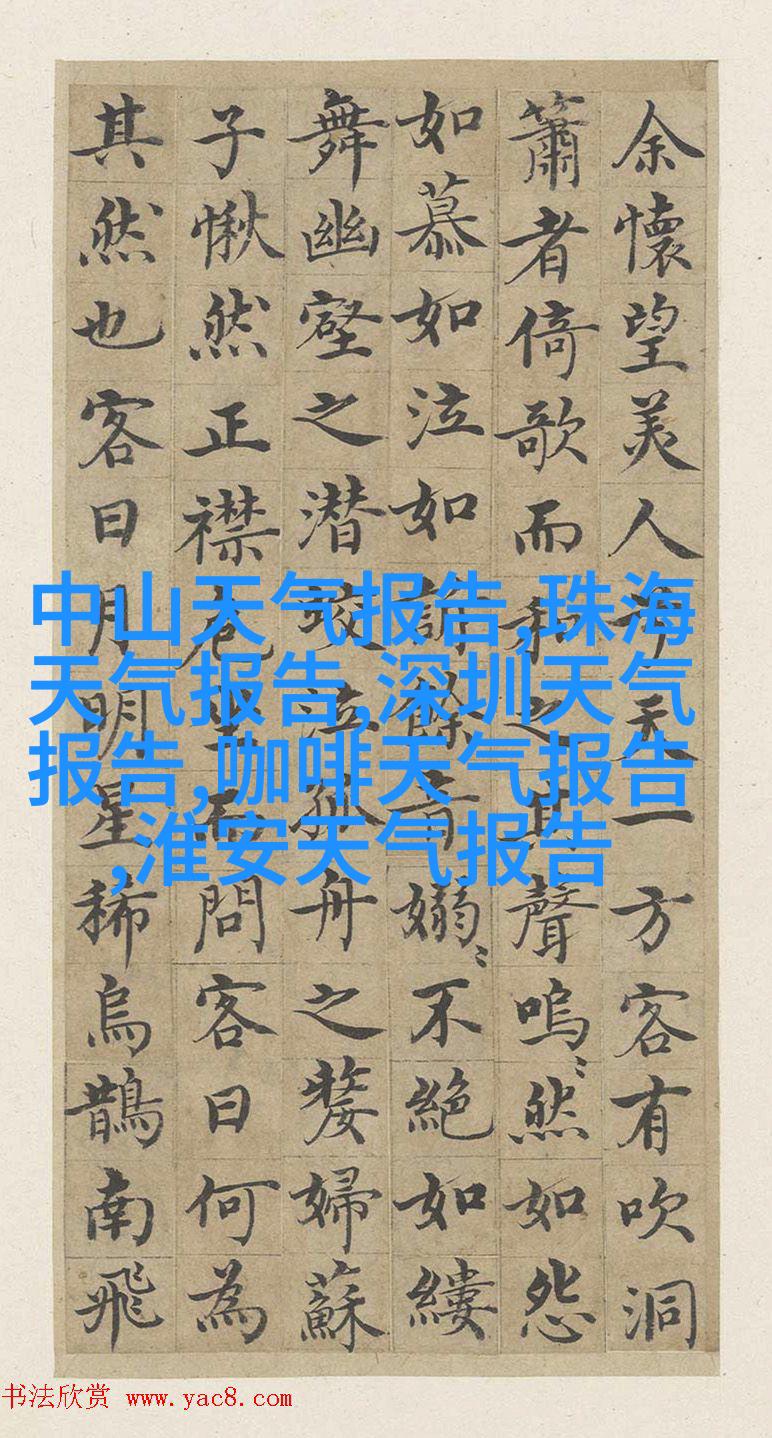 余懷望美人兮天一方客有吹洞
簫者倚歌而和之其聲嗚〻然如怨
如慕如泣如訴餘音嫋〻不絶如縷
舞幽壑之潜蛟泣孤舟之嫠婦蘇
子愀然正襟危坐而問客曰何為
其然也客曰月明星稀烏鵲南飛
中山天气报告,珠海
天气报告,深圳天气
报告,咖啡天气报告
,淮安天气报告
书法欣赏 www.yac8.com